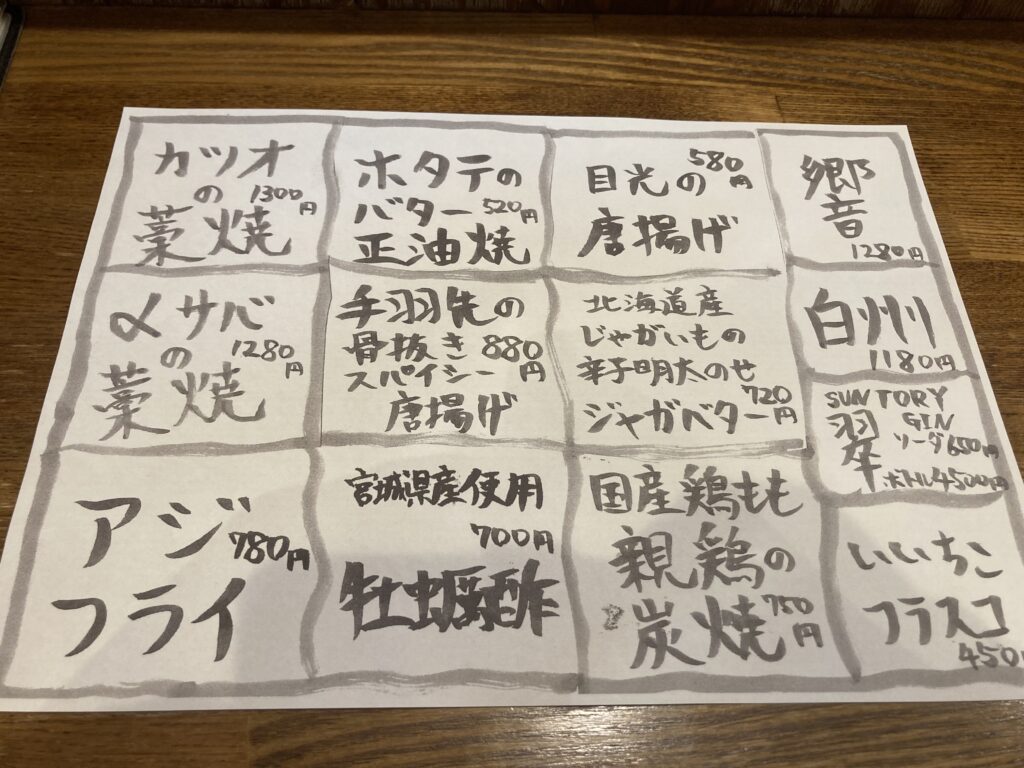 カツオ
の 1300円
藁焼
ホタテの
バター 520円
正油焼
目光の 580円
唐揚げ
響
1280円
〆サバ
の 1280円
藁焼
手羽先の
骨抜き 880円
スパイシー
唐揚げ
北海道産
じゃがいもの
辛子明太のせ
ジャガベター 720円
白州
1180円
SUNTORY
GIN
翠 ソーダ 650円
ボトル 4500円
アジ 780円
フライ
宮城県産使用
700円
牡蠣酢
国産鶏もも
親鶏の
炭焼 750円
いいちこ
フラスコ
450円